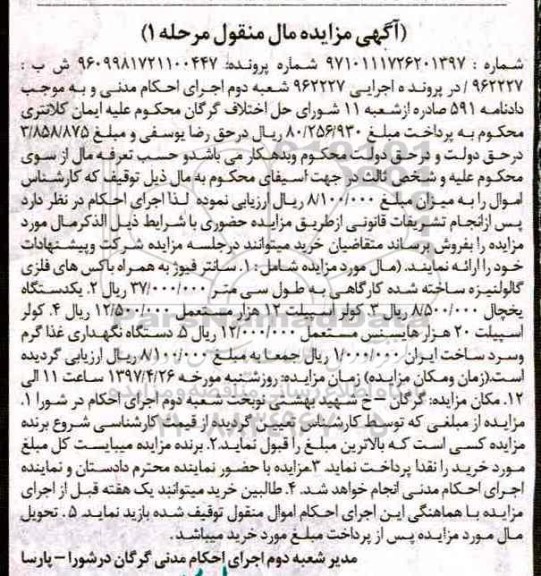 (آگهی مزایده مال منقول مرحله ۱)
شماره : ۹۷۱۰۱۱۱۷۲۶۲۰۱۳۹۷ شماره پرونده: ۹۶۰۹۹۸۱۷۲۱۱۰۰۴۴۷ ش ب :
۹۶۲۲۲۷ / در پرونده اجرایی ۹۶۲۲۲۷ شعبه دوم اجرای احکام مدنی و به موجب
دادنامه ۵۹۱ صادره ازشعبه ۱۱ شورای حل اختلاف گرگان محکوم علیه ایمان کلانتری
محکوم به پرداخت مبلغ ۸۰/۲۵۶/۹۳۰ ریال درحق رضا یوسفی و مبلغ ۳/۸۵۸/۸۷۵
درحق دولت و درحق دولت محکوم وبدهکار می باشدو حسب تعرفه مال از سوی
محکوم علیه و شخص ثالث در جهت اسیفای محکوم به مال ذیل توقیف که کارشناس
اموال را به میزان مبلغ ۸/۱۰۰/۰۰۰ ریال ارزیابی نموده لذا اجرای احکام در نظر دارد
پس ازانجام تشریفات قانونی ازطریق مزایده حضوری با شرایط ذیل الذکرمال مورد
مزایده را بفروش برساند متقاضیان خرید میتوانند درجلسه مزایده شرکت وپیشنهادات
خود را ارائه نمایند. (مال مورد مزایده شامل: ۱. سانتر فیوژ به همراه باکس های فلزی
گالوانیزه ساخته شده کارگاهی به طول سی متر ۳۷/۰۰۰/۰۰۰ ریال ۲. یکدستگاه
یخچال ۸/۵۰۰/۰۰۰ ریال ۳. کولر اسپیلت ۱۲ هزار مستعمل ۱۲/۵۰۰/۰۰۰ ریال ۴. کولر
اسپیلت ۲۰ هزار هایسنس مستعمل ۱۲/۰۰۰/۰۰۰ ریال ۵. دستگاه نگهداری غذا گرم
وسرد ساخت ایران ۱/۰۰۰/۰۰۰ ریال جمعا به مبلغ ۸/۱۰۰/۰۰۰ ریال ارزیابی گردیده
است.(زمان ومکان مزایده) زمان مزایده: روزشنبه مورخه ۱۳۹۷/۴/۲۶ ساعت ۱۱ الی
۱۲. مکان مزایده: گرگان – خ شهید بهشتی نوبخت شعبه دوم اجرای احکام در شورا ۱.
مزایده از مبلغی که توسط کارشناس تعیین گردیده از قیمت کارشناسی شروع برنده
مزایده کسی است که بالاترین مبلغ را قبول نماید.۲. برنده مزایده میبایست کل مبلغ
مورد خرید را نقدا پرداخت نماید. ۳.مزایده با حضور نماینده محترم دادستان و نماینده
اجرای احکام مدنی انجام خواهد شد. ۴. طالبین خرید میتوانند یک هفته قبل از اجرای
مزایده با هماهنگی این اجرای احکام اموال منقول توقیف شده بازید نماید. ۵ . تحویل
مال مورد مزایده پس از پرداخت مبلغ مورد خرید میباشد.
مدیر شعبه دوم اجرای احکام مدنی گرگان درشورا – پارسا